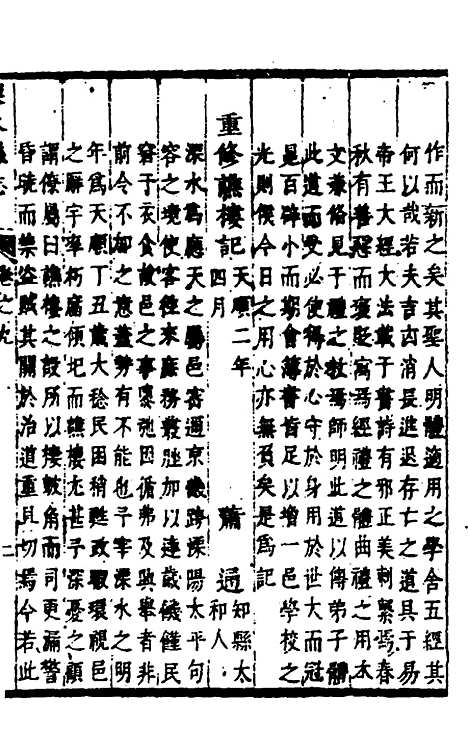 作而新之矣其聖人明體適用之學舍五經其
何以哉若夫吉凶消長進退存亡之道具于易
帝王大經大法載于書詩有邪正美刺繫焉春
秋有善惡而褒貶寓焉經禮之體曲禮之用本
文兼俗見于禮之教焉師明此道以傳弟子體
此道而受必使得於心守於身用於世大而冠
是百辟小而期會簿書皆足以增一邑學校之
光則僕今日之用心亦無負矣是為記
重修譙樓記 天順二年四月 蕭通 知縣太和人
溧水為應天之勝邑密邇京畿跨溧陽太平句
容之境使客往來庶務叢脞加以連歲饑饉民
窘于衣食故邑之事隳弛因循弗及興舉者非
前令不加之意蓋勢有不能也予宰溧水之明
年為天順丁丑歲大稔民困稍甦政暇環視邑
之廨宇率朽腐傾圯而譙樓尤甚予深憂之顧
謂僚屬曰譙樓之設所以樓鼓角而司更漏警
昏曉而禁盜賊其關於治道重且切焉今若此
溧水縣志 卷之九 二